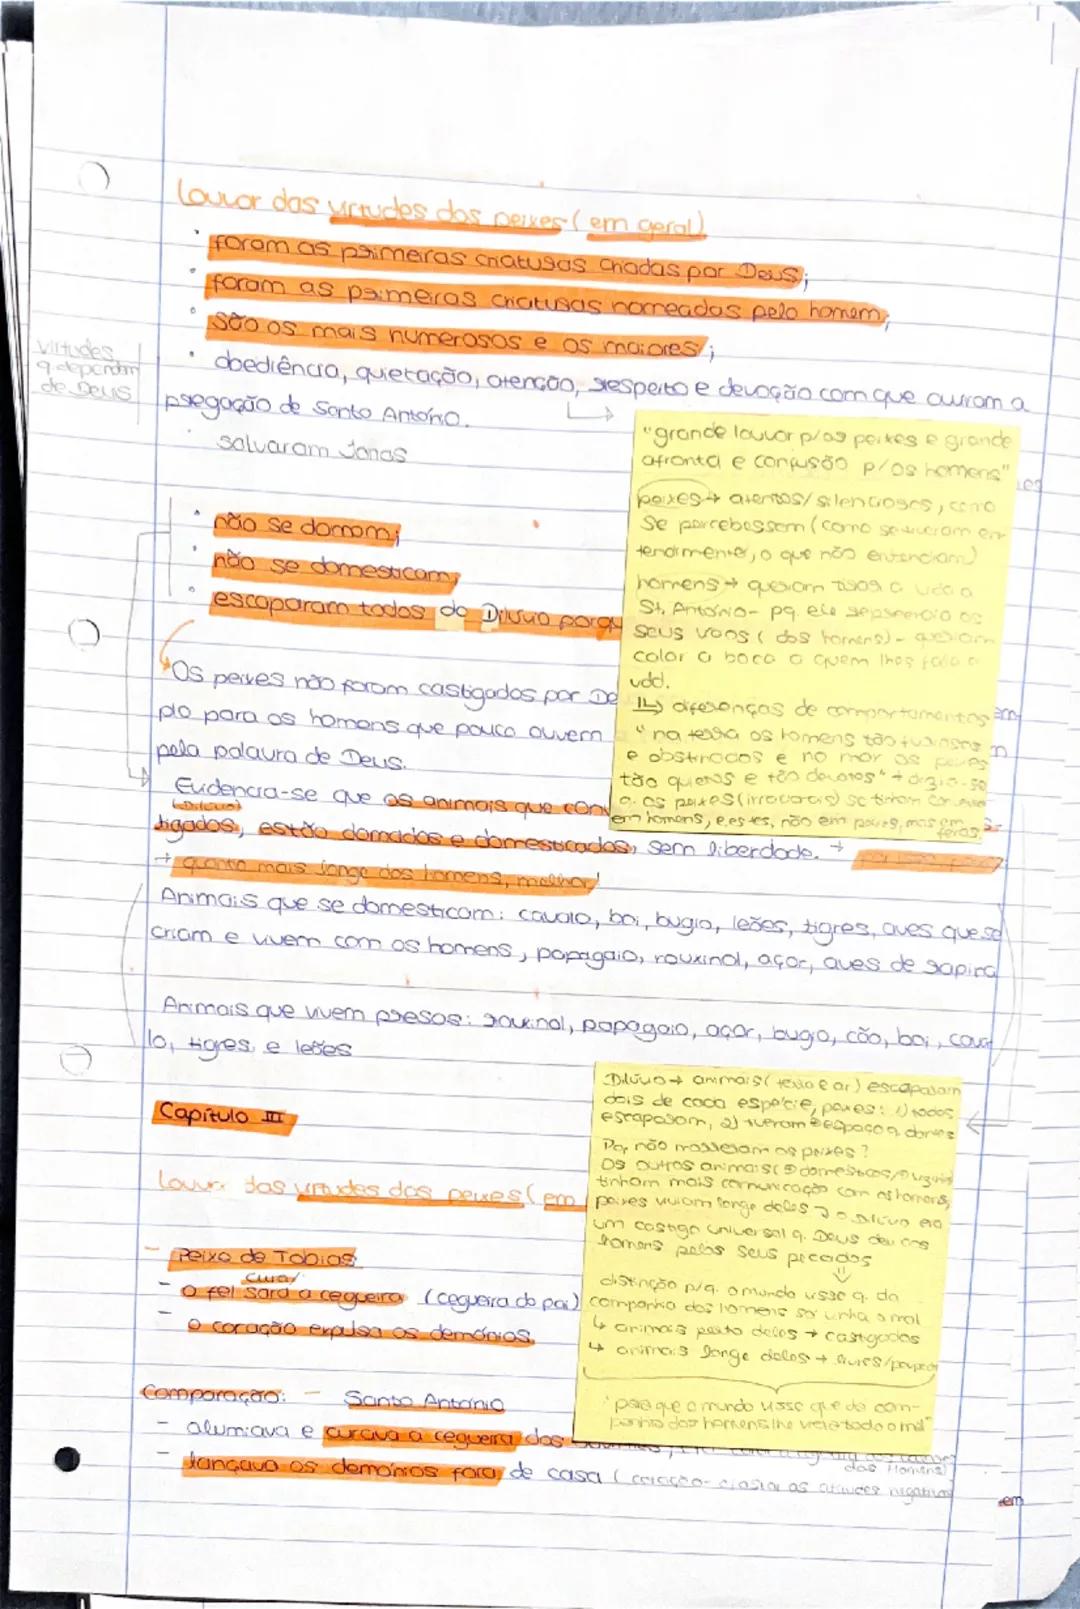 Louvor das virtudes dos peixes (em geral)
foram as primeiras criaturas criadas por Deus;
foram as primeiras criaturas nomeadas pelo homem;
são os mais numerosos e os maiores;
obediência, quietação, atenção, respeito e devoção com que ouviram a
pregação de Santo António.
salvaram Jonas
virtudes
q dependem
de Deus
"grande louvor p/os peixes e grande
afronta e confusão p/os homens"
peixes → atentos/silenciosos, como
se percebessem (como se tiveram en-
tendimento, o que não entendiam)
homens → queriam tirar a vida a
St. António - pq ele repreendia os
seus vícios (dos homens) - queriam
calar a boca a quem lhes fala a
vdd.
↳ diferenças de comportamentos
"na terra os homens tão furiosos
e obstinados e no mar os peixes
tão quietos e tão devotos" → dizia-se
q. os peixes (irracionais) se tinham
em homens, e estes, não em peixes, mas em
feras.
não se domam;
não se domesticam;
escaparam todos do Dilúvio porqu
Os peixes não foram castigados por De
plo para os homens que pouco ouvem
pela palavra de Deus.
Evidencia-se que os animais que conv
(Dilúvio)
tigados, estão domados e domesticados, sem liberdade. →
→ quanto mais longe dos homens, melhor!
Animais que se domesticam: cavalo, boi, bugio, leões, tigres, aves que se
criam e vivem com os homens, papagaio, rouxinol, açor, aves de rapina
Animais que vivem presos: rouxinol, papagaio, açor, bugio, cão, boi, cava
lo, tigres e leões
Dilúvio → animais (terra e ar) escaparam
dois de cada espécie, peixes: 1) todos
escaparam, 2) tiveram + espaço q. antes
Pq não morreram os peixes?
Os outros animais
tinham mais comunicação com os homens,
peixes viviam longe deles → o Dilúvio era
um castigo universal q. Deus deu aos
homens pelos seus pecados
⇓
distinção p/q. o mundo visse q. da
companhia dos homens só vinha o mal
↳ animais perto deles → castigados
↳ animais longe deles → livres/
"para que o mundo visse que da com-
panhia dos homens lhe viera todo o mal"
Capítulo III
Louvor das virtudes dos peixes (em
- Peixe de Tobias
cura/
- o fel sara a cegueira (cegueira do pai)
- o coração expulsa os demónios
Comparação: - Santo António
- alumiava e curava a cegueira dos
dos Homens)
- lançava os demónios fora de casa (coração-
em